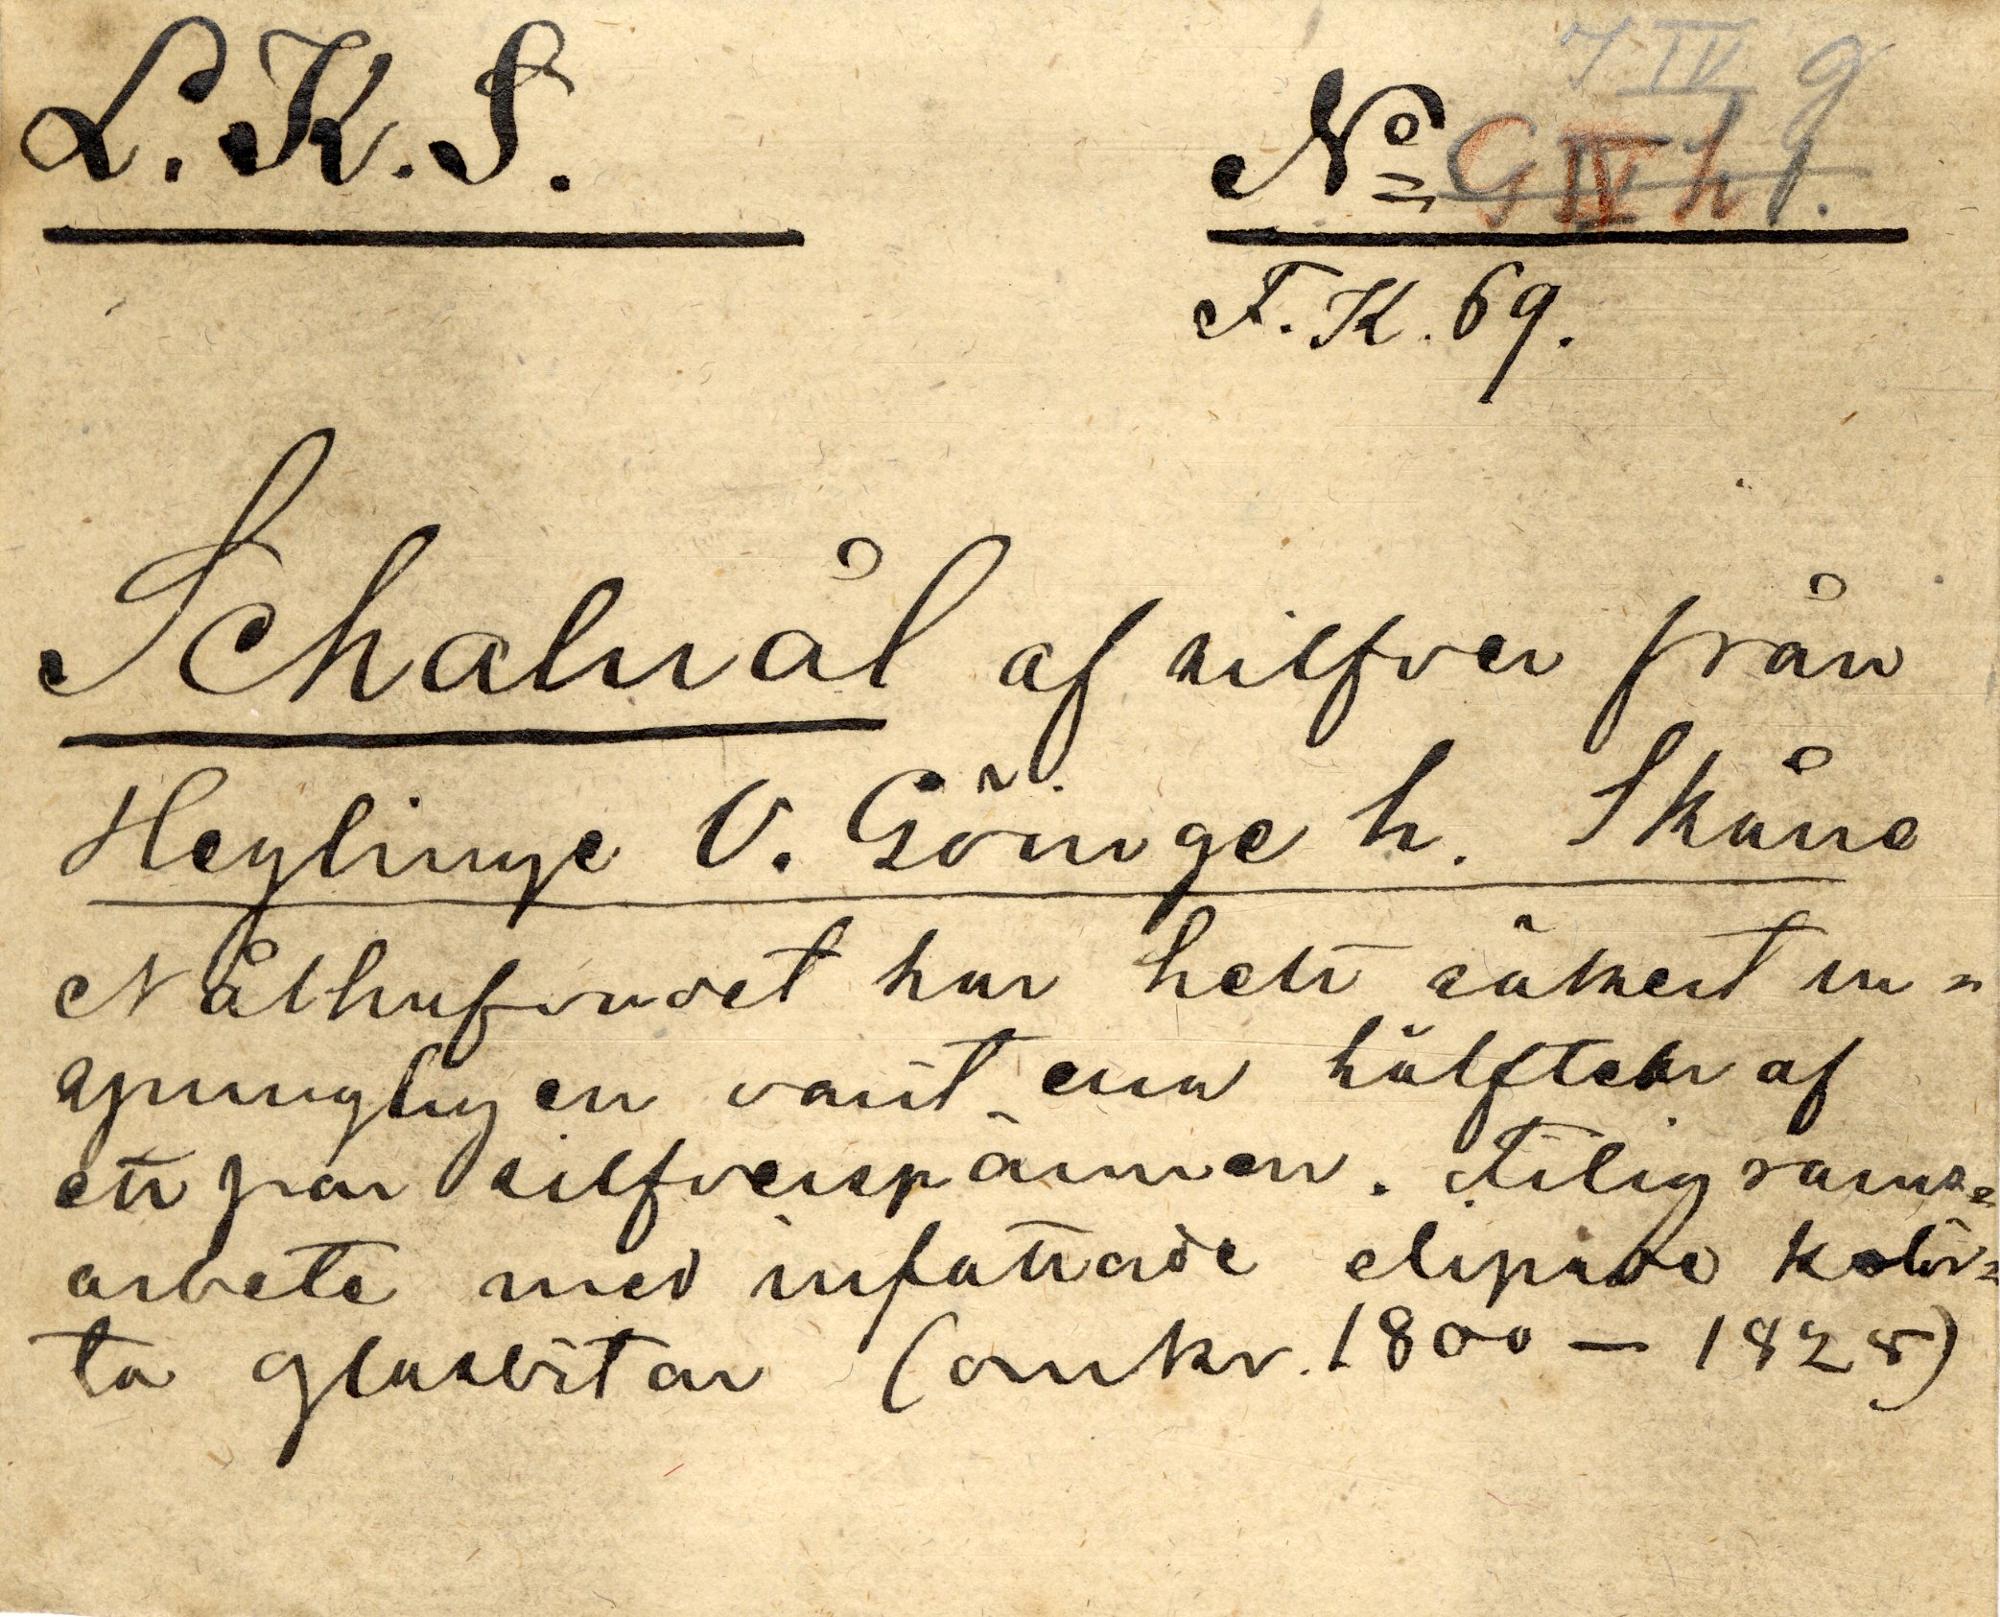 L. K. S.
7 IV g
No G IV h g.
F. K. 69.
Schalnål af silfver från
Heglinge V. Göinge h. Skåne
Nålhufvudet har helt säkert ur=
sprungligen varit ena hälften af
ett par silfverspännen. Filigrams=
arbete med infattade slipade kolör=
ta glasbitar (omkr. 1800 — 1825)